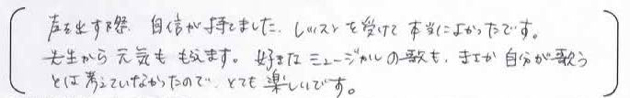 声を出す際、自信が持てました。レッスンを受けて本当によかったです。
先生から元気ももらえます。好きなミュージカルの歌も、まさか自分が歌う
とは考えていなかったので、とても楽しいです。